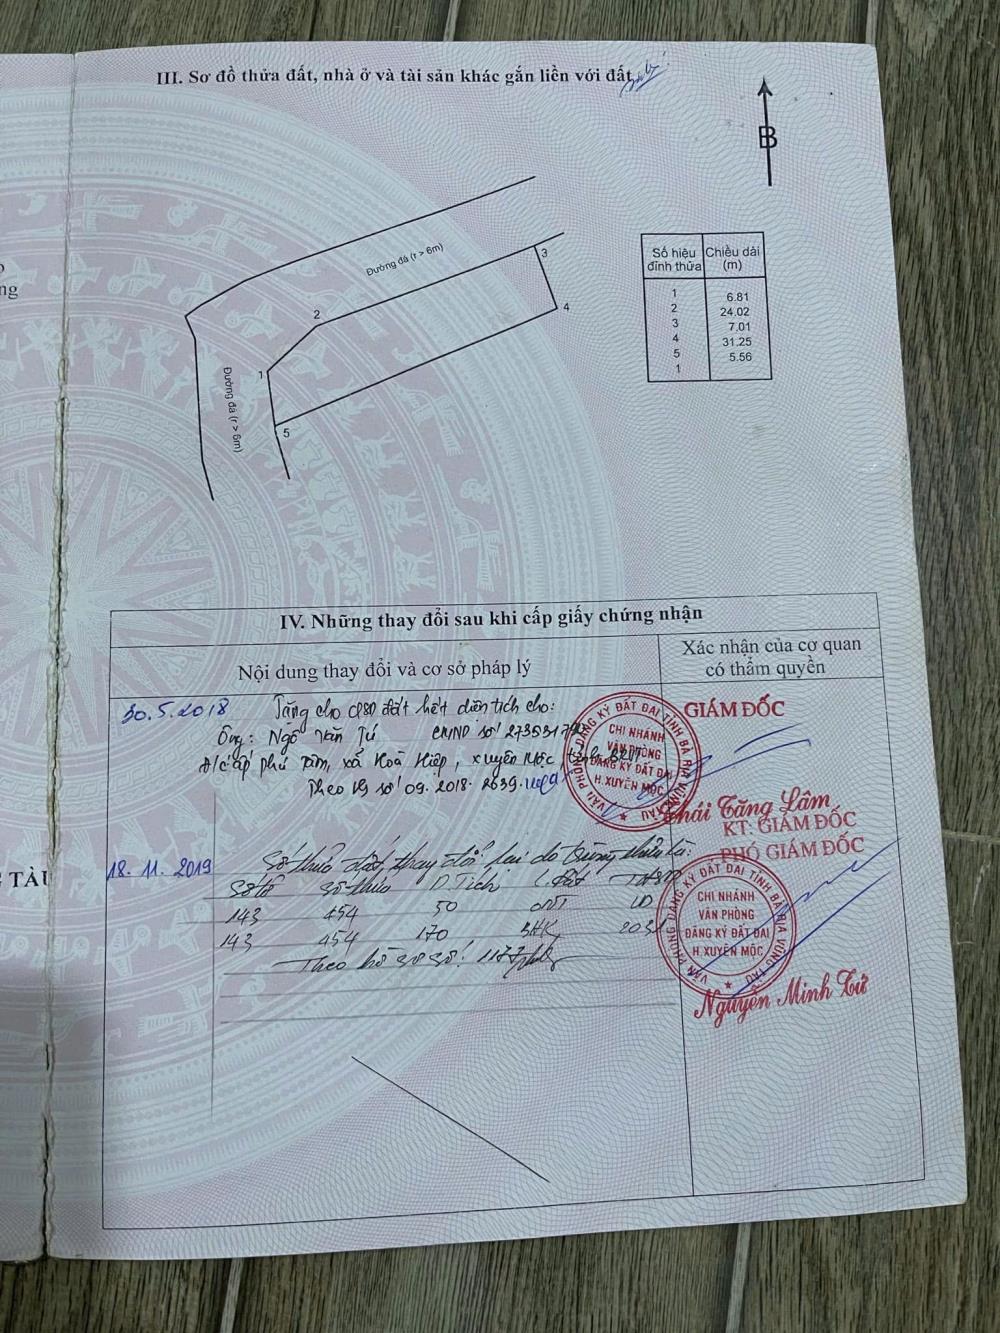 III. Sơ đồ thửa đất, nhà ở và tài sản khác gắn liền với đất
B
Đường đá (r > 6m)
Đường đá (r > 6m)
1
2
3
4
5
Số hiệu đỉnh thửa
Chiều dài (m)
1
2
3
4
5
1
6.81
24.02
7.01
31.25
5.56
ng
TÀU
IV. Những thay đổi sau khi cấp giấy chứng nhận
Nội dung thay đổi và cơ sở pháp lý
Xác nhận của cơ quan có thẩm quyền
30.5.2018 Tặng cho QSD đất hết diện tích cho:
Ông: Ngô Văn Tú CMND số
Đ/c ấp phú Tâm, xã Hoà Hiệp, Xuyên Mộc, tỉnh BRVT
Theo HS số 09.2018.2639.
GIÁM ĐỐC
VĂN PHÒNG ĐĂNG KÝ ĐẤT ĐAI TỈNH BÀ RỊA VŨNG TÀU
CHI NHÁNH
VĂN PHÒNG
ĐĂNG KÝ ĐẤT ĐAI
H. XUYÊN MỘC
Thái Tăng Lâm
KT: GIÁM ĐỐC
PHÓ GIÁM ĐỐC
18.11.2019 Số thửa đất thay đổi lại do trùng thửa là:
Số tờ số thửa D.Tích L.đất
143 454 50 ONT LD
143 454 170 BHK
Theo hồ sơ số: 1177
VĂN PHÒNG ĐĂNG KÝ ĐẤT ĐAI TỈNH BÀ RỊA VŨNG TÀU
CHI NHÁNH
VĂN PHÒNG
ĐĂNG KÝ ĐẤT ĐAI
H. XUYÊN MỘC
Nguyễn Minh Tứ